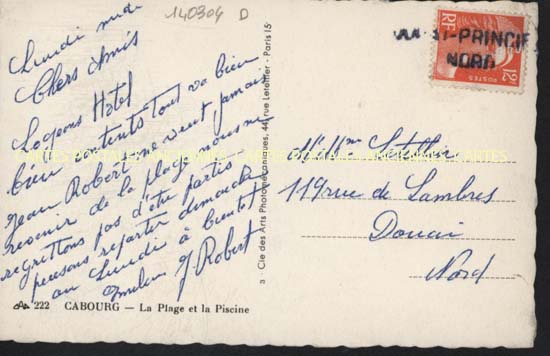 140304 D
Lundi midi
Chers Amis
Logeons Hôtel
bien contents tout va bien
Jean Robert ne veut jamais
revenir de la plage nous ne
regrettons pas d'être partis -
pensons repartir dimanche
ou Lundi à bientôt
J. Robert
222 CABOURG — La Plage et la Piscine
3 Cie des Arts Photomécaniques, 44, rue Letellier - Paris 15
ST-PRINCIP
NORD
RF
POSTES
12F
119 rue de Lambres
Douai
Nord